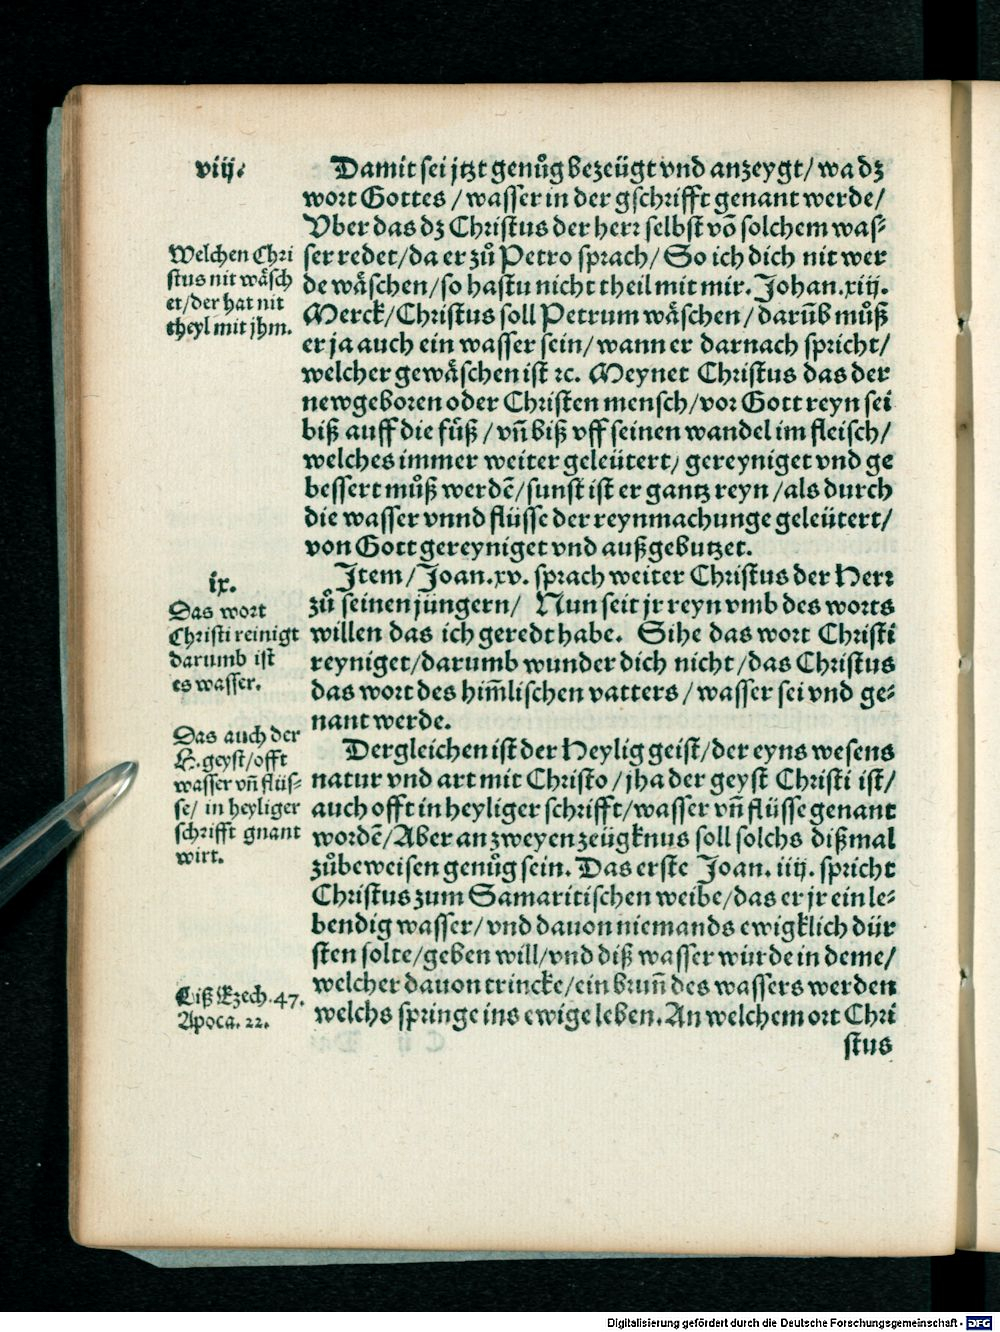 viij.
Damit sei jtzt genůg bezeügt vnd anzeygt/ wa dz
wort Gottes / wasser in der gschrifft genant werde/
Vber das dz Christus der herr selbst võ solchem was⸗
ser redet/da er zů Petro sprach/ So ich dich nit wer
de wäschen/so hastu nicht theil mit mir. Johan.xiij.
Merck/Christus soll Petrum wäschen/ darũb můß
er ja auch ein wasser sein/ wann er darnach spricht/
welcher gewäschen ist ꝛc. Meynet Christus das der
newgeboren oder Christen mensch/vor Gott reyn sei
biß auff die fůß / vñ biß vff seinen wandel im fleisch/
welches immer weiter geleütert/ gereyniget vnd ge
bessert můß werdẽ/sunst ist er gantz reyn /als durch
die wasser vnnd flüsse der reynmachunge geleütert/
von Gott gereyniget vnd außgebutzet.
Welchen Chri
stus nit wäsch
et/der hat nit
theyl mit jhm.
ix.
Item/Joan.xv. sprach weiter Christus der Herr
zů seinen jüngern/ Nun seit jr reyn vmb des worts
willen das ich geredt habe. Sihe das wort Christi
reyniget/darumb wunder dich nicht /das Christus
das wort des him̃lischen vatters/ wasser sei vnd ge⸗
nant werde.
Das wort
Christi reinigt
darumb ist
es wasser.
Dergleichen ist der Heylig geist/der eyns wesens
natur vnd art mit Christo /jha der geyst Christi ist/
auch offt in heyliger schrifft/wasser vñ flüsse genant
wordẽ/Aber an zweyen zeügknus soll solchs dißmal
zůbeweisen genůg sein. Das erste Joan. iiij. spricht
Christus zum Samaritischen weibe/das er jr ein le⸗
bendig wasser/ vnd dauon niemands ewigklich dür
sten solte/geben will/vnd diß wasser würde in deme/
welcher dauon trincke/ein brun̄ des wassers werden
welchs springe ins ewige leben. An welchem ort Chri
stus
Das auch der
H. geyst/offt
wasser vñ flüs⸗
se/ in heyliger
schrifft gnant
wirt.
Liß Ezech. 47.
Apoca. 22.
Digitalisierung gefördert durch die Deutsche Forschungsgemeinschaft - DFG